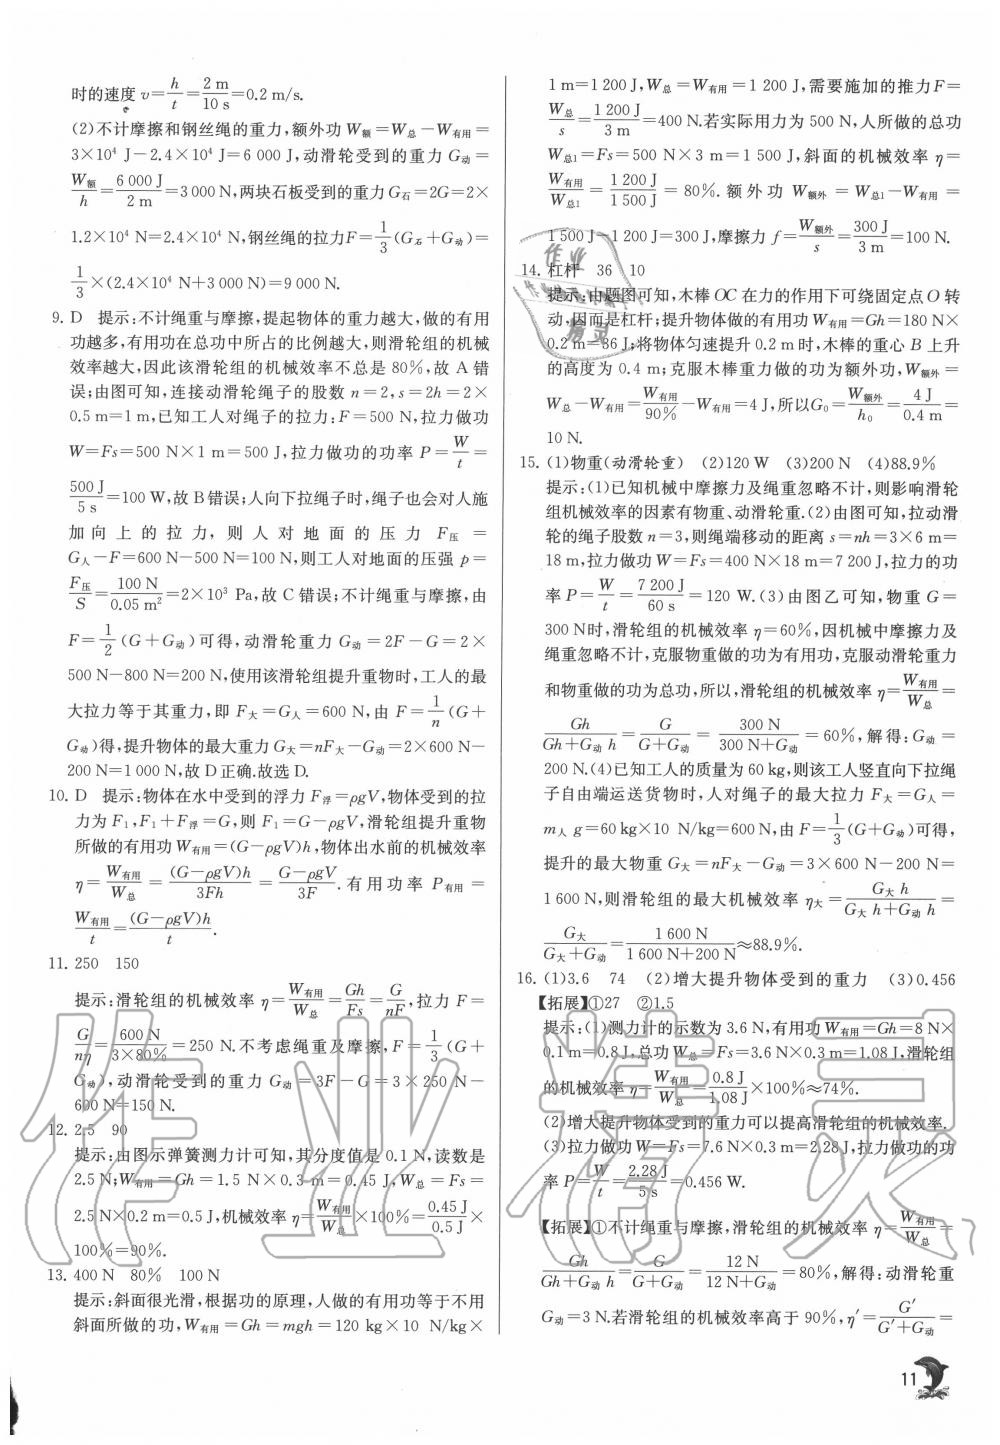 时的速度 v=h/t=2 m/10 s=0.2 m/s.
(2)不计摩擦和钢丝绳的重力,额外功 W额=W总-W有用=
3×10⁴ J-2.4×10⁴ J=6 000 J,动滑轮受到的重力 G动=
W额/h=6 000 J/2 m=3 000 N,两块石板受到的重力 G石=2G=2×
1.2×10⁴ N=2.4×10⁴ N,钢丝绳的拉力F=1/3(G石+G动)=
1/3×(2.4×10⁴ N+3 000 N)=9 000 N.
9. D 提示:不计绳重与摩擦,提起物体的重力越大,做的有用
功越多,有用功在总功中所占的比例越大,则滑轮组的机械
效率越大,因此该滑轮组的机械效率不总是 80%,故 A 错
误;由图可知,连接动滑轮绳子的股数 n=2,s=2h=2×
0.5 m=1 m,已知工人对绳子的拉力:F=500 N,拉力做功
W=Fs=500 N×1 m=500 J,拉力做功的功率 P=W/t=
500 J/5 s=100 W,故 B错误;人向下拉绳子时,绳子也会对人施
加向上的拉力,则人对地面的压力 F压=
G人-F=600 N-500 N=100 N,则工人对地面的压强 p=
F压/S=100 N/0.05 m²=2×10³ Pa,故 C 错误;不计绳重与摩擦,由
F=1/2(G+G动)可得,动滑轮重力 G动=2F-G=2×
500 N-800 N=200 N,使用该滑轮组提升重物时,工人的最
大拉力等于其重力,即 F大=G人=600 N,由 F=1/n(G+
G动)得,提升物体的最大重力 G大=nF大-G动=2×600 N-
200 N=1 000 N,故 D 正确.故选 D.
10. D 提示:物体在水中受到的浮力 F浮=ρgV,物体受到的拉
力为 F₁,F₁+F浮=G,则 F₁=G-ρgV,滑轮组提升重物
所做的有用功 W有用=(G-ρgV)h,物体出水前的机械效率
η=W有用/W总=(G-ρgV)h/3Fh=G-ρgV/3F.有用功率 P有用=
W有用/t=(G-ρgV)h/t.
11. 250 150
提示:滑轮组的机械效率 η=W有用/W总=Gh/Fs=G/nF,拉力 F=
G/nη=600 N/3×80%=250 N.不考虑绳重及摩擦,F=1/3(G+
G动),动滑轮受到的重力 G动=3F-G=3×250 N-
600 N=150 N.
12. 2.5 90
提示:由图示弹簧测力计可知,其分度值是 0.1 N,读数是
2.5 N;W有用=Gh=1.5 N×0.3 m=0.45 J,W总=Fs=
2.5 N×0.2 m=0.5 J,机械效率 η=W有用/W总×100%=0.45 J/0.5 J×
100%=90%.
13. 400 N 80% 100 N
提示:斜面很光滑,根据功的原理,人做的有用功等于不用
斜面所做的功,W有用=Gh=mgh=120 kg×10 N/kg×
1 m=1 200 J,W总=W有用=1 200 J,需要施加的推力F=
W总/s=1 200 J/3 m=400 N.若实际用力为 500 N,人所做的总功
W总1=Fs=500 N×3 m=1 500 J,斜面的机械效率 η=
W有用/W总1=1 200 J/1 500 J=80%.额外功 W额外=W总1-W有用=
1 500 J-1 200 J=300 J,摩擦力 f=W额外/s=300 J/3 m=100 N.
14. 杠杆 36 10
提示:由题图可知,木棒 OC 在力的作用下可绕固定点 O 转
动,因而是杠杆;提升物体做的有用功 W有用=Gh=180 N×
0.2 m=36 J;将物体匀速提升 0.2 m时,木棒的重心 B 上升
的高度为 0.4 m;克服木棒重力做的功为额外功,W额外=
W总-W有用=W有用/90%-W有用=4 J,所以G₀=W额外/h₀=4 J/0.4 m=
10 N.
15. (1)物重(动滑轮重) (2)120 W (3)200 N (4)88.9%
提示:(1)已知机械中摩擦力及绳重忽略不计,则影响滑轮
组机械效率的因素有物重、动滑轮重.(2)由图可知,拉动滑
轮的绳子股数 n=3,则绳端移动的距离 s=nh=3×6 m=
18 m,拉力做功 W=Fs=400 N×18 m=7 200 J,拉力的功
率 P=W/t=7 200 J/60 s=120 W.(3)由图乙可知,物重 G=
300 N时,滑轮组的机械效率 η=60%,因机械中摩擦力及
绳重忽略不计,克服物重做的功为有用功,克服动滑轮重力
和物重做的功为总功,所以,滑轮组的机械效率 η=W有用/W总=
Gh/Gh+G动 h=G/G+G动=300 N/300 N+G动=60%,解得:G动=
200 N.(4)已知工人的质量为 60 kg,则该工人竖直向下拉绳
子自由端运送货物时,人对绳子的最大拉力 F大=G人=
m人 g=60 kg×10 N/kg=600 N,由 F=1/3(G+G动)可得,
提升的最大物重 G大=nF大-G动=3×600 N-200 N=
1 600 N,则滑轮组的最大机械效率 η大=G大 h/G大 h+G动 h=
G大/G大+G动=1 600 N/1 600 N+200 N≈88.9%.
16. (1)3.6 74 (2)增大提升物体受到的重力 (3)0.456
【拓展】①27 ②1.5
提示:(1)测力计的示数为 3.6 N,有用功 W有用=Gh=8 N×
0.1 m=0.8 J,总功 W总=Fs=3.6 N×0.3 m=1.08 J,滑轮组
的机械效率 η=W有用/W总=0.8 J/1.08 J×100%≈74%.
(2)增大提升物体受到的重力可以提高滑轮组的机械效率.
(3)拉力做功 W=Fs=7.6 N×0.3 m=2.28 J,拉力做功的功
率 P=W/t=2.28 J/5 s=0.456 W.
【拓展】①不计绳重与摩擦,滑轮组的机械效率 η=W有用/W总=
Gh/Gh+G动 h=G/G+G动=12 N/12 N+G动=80%,解得:动滑轮重
G动=3 N.若滑轮组的机械效率高于 90%,η′=G′/G′+G动=
11
作业精灵